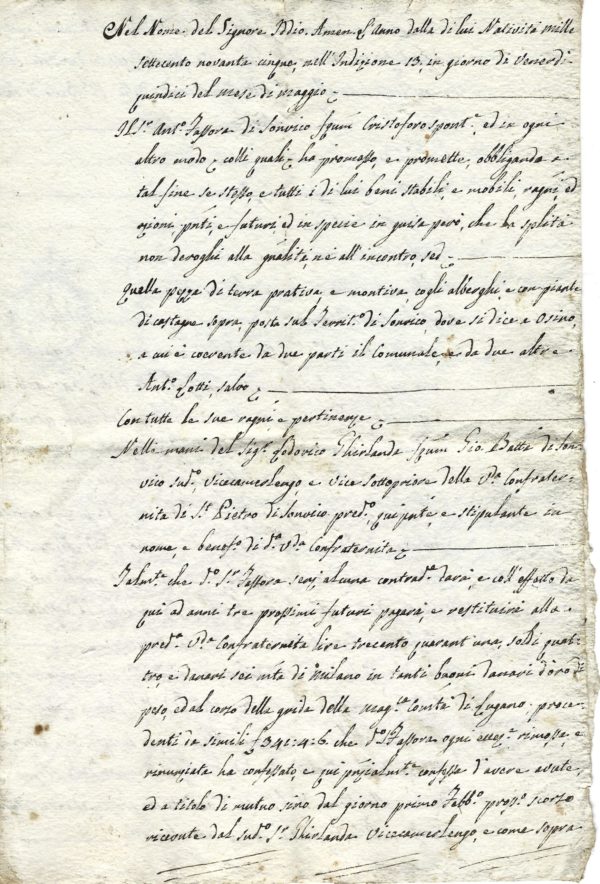 Nel Nome del Signore Iddio. Amen. L'Anno dalla di lui Natività mille
settecento novanta cinque, nell'Indizione 13, in giorno di Venerdì
quindici del mese di maggio
Il Sr. Anto. Fassora di Sonvico fqum Cristoforo spont.e ed in ogni
altro modo colli quali ha promesso, e promette, obbligando a
tal fine se stesso, e tutti i di lui beni stabili, e mobili, ragni, ed
azioni, pnti, e futuri, ed in specie in guisa però, che la splità
non deroghi alla gnalità, nè all'incontro, sed
Quella pezza di terra prativa, e montiva, cogli alberghi, e con piante
di castagne sopra, posta sul Territ.o di Sonvico, dove si dice a Osino,
a cui è coerente da due parti il Comunale, e da due altre
Anto. Lotti, salvo
Con tutte le sue ragni e pertinenze
Nelle mani del Sigr. Lodovico Ghirlanda fqum Gio. Batta di Son-
vico sudo. Vicecamerlengo e vice sottopriore della Vda Confrater-
nita di Sn. Pietro di Sonvico predo. qui pnte e stipulante in
nome, e benefo. di da. Vda Confraternita
Talmte che do. Sr. Fassora senz'alcuna contrade. darà, e coll'effetto da
qui ad anni tre prossimi futuri pagarà, e restituirà alla
preda. Vda Confraternita lire trecento quarant'una, soldi quat-
tro, e danari sei mta di Milano in tanti buoni danari d'oro di
peso, ed al corso della grida della Magca Comtà di Lugano proce-
denti da simili £ 341:4:6. che do. Sr. Fassora ogni ecceze. rimossa, e
rinunziata ha confessato, e qui pnzialmte. confessa d'avere avute,
ed a titolo di mutuo sino dal giorno primo Febbo. prosso. scorso
ricevute dal sudo. Sr. Ghirlanda Vicecamerlengo, e come sopra